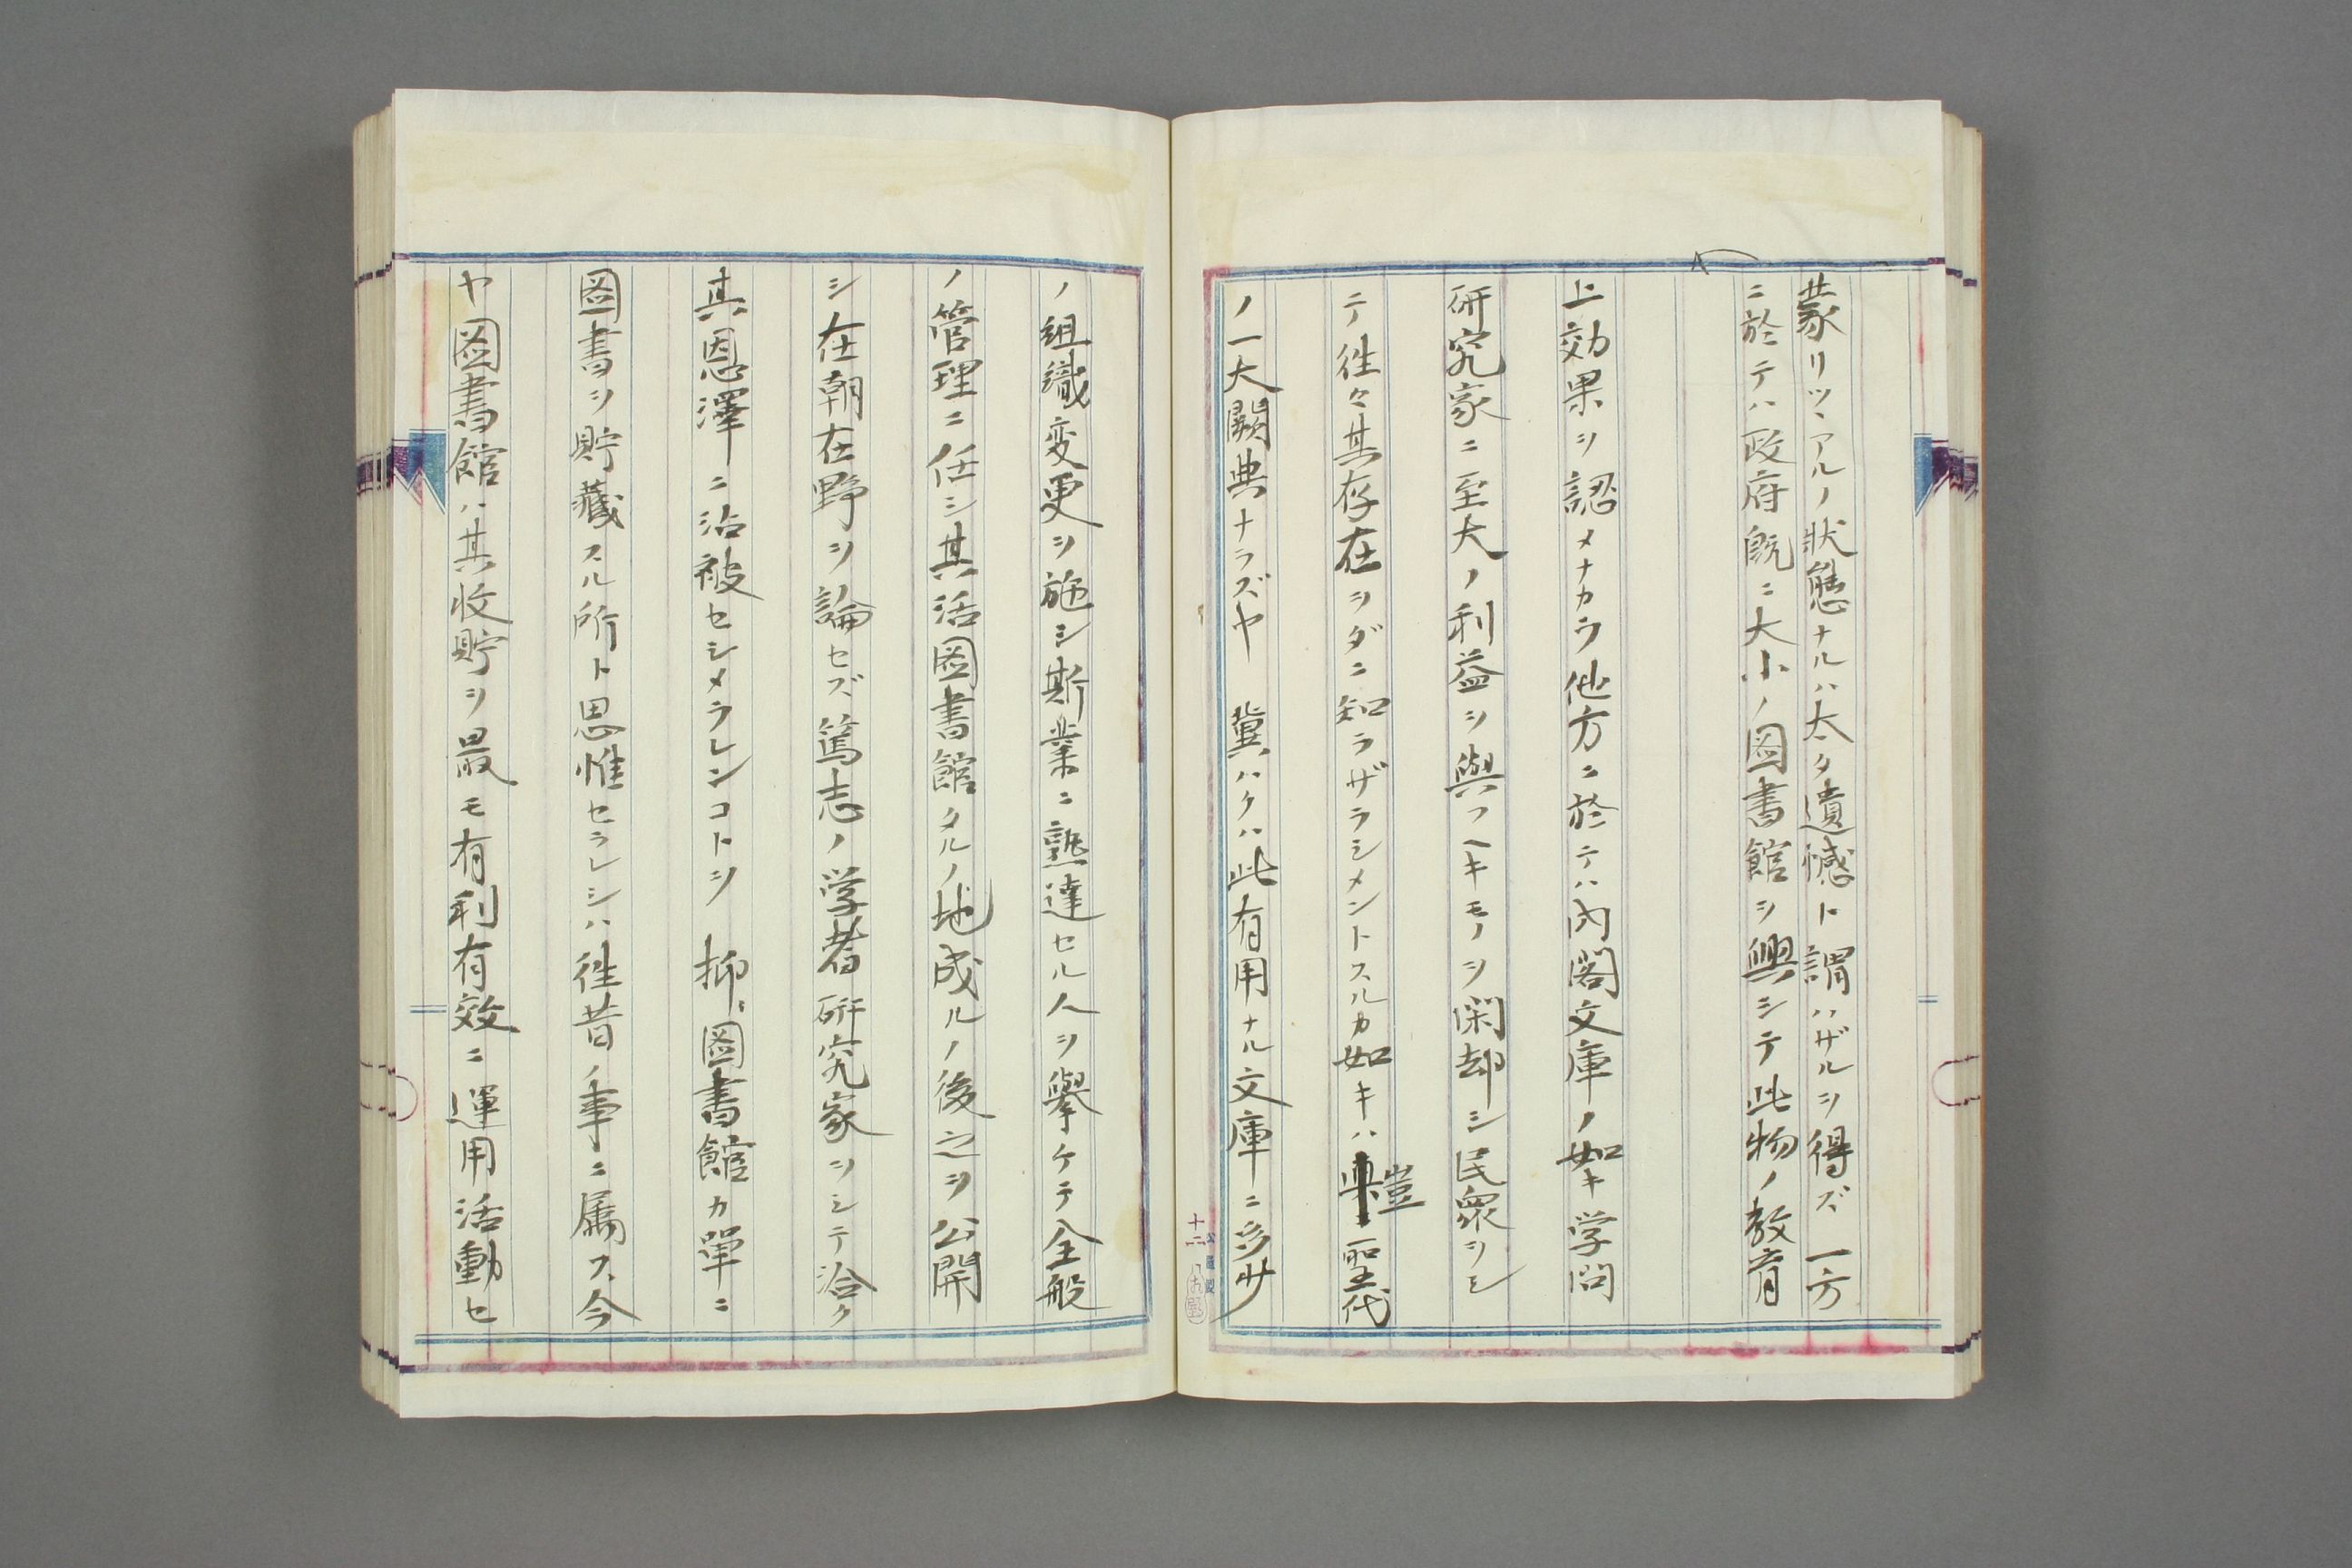 蒙リツヽアルノ狀態ナルハ太タ遺憾ト謂ハザルヲ得ズ一方
ニ於テハ政府既ニ大小ノ図書館ヲ興シテ此物ノ教育
上効果ヲ認メナカラ他方ニ於テハ内閣文庫ノ如キ学問
研究家ニ至大ノ利益ヲ與フヘキモノヲ閑却シ民衆ヲシ
テ徃々其存在ヲダニ知ラザラシメントスルカ如キハ豈聖代
ノ一大闕典ナラズヤ 冀ハクハ此有用ナル文庫ニ多少
十二
ノ組織変更ヲ施シ斯業ニ熟達セル人ヲ擧ケテ全般
ノ管理ニ任シ其活図書館タルノ地成ルノ後之ヲ公開
シ在朝在野ヲ論セズ篤志ノ学者研究家ヲシテ洽ク
其恩澤ニ沾被セシメラレンコトヲ 抑〻図書館カ單ニ
図書ヲ貯藏スル所ト思惟セラレシハ徃昔ノ事ニ属ス今
ヤ図書館ハ其收貯ヲ最モ有利有效ニ運用活動セ